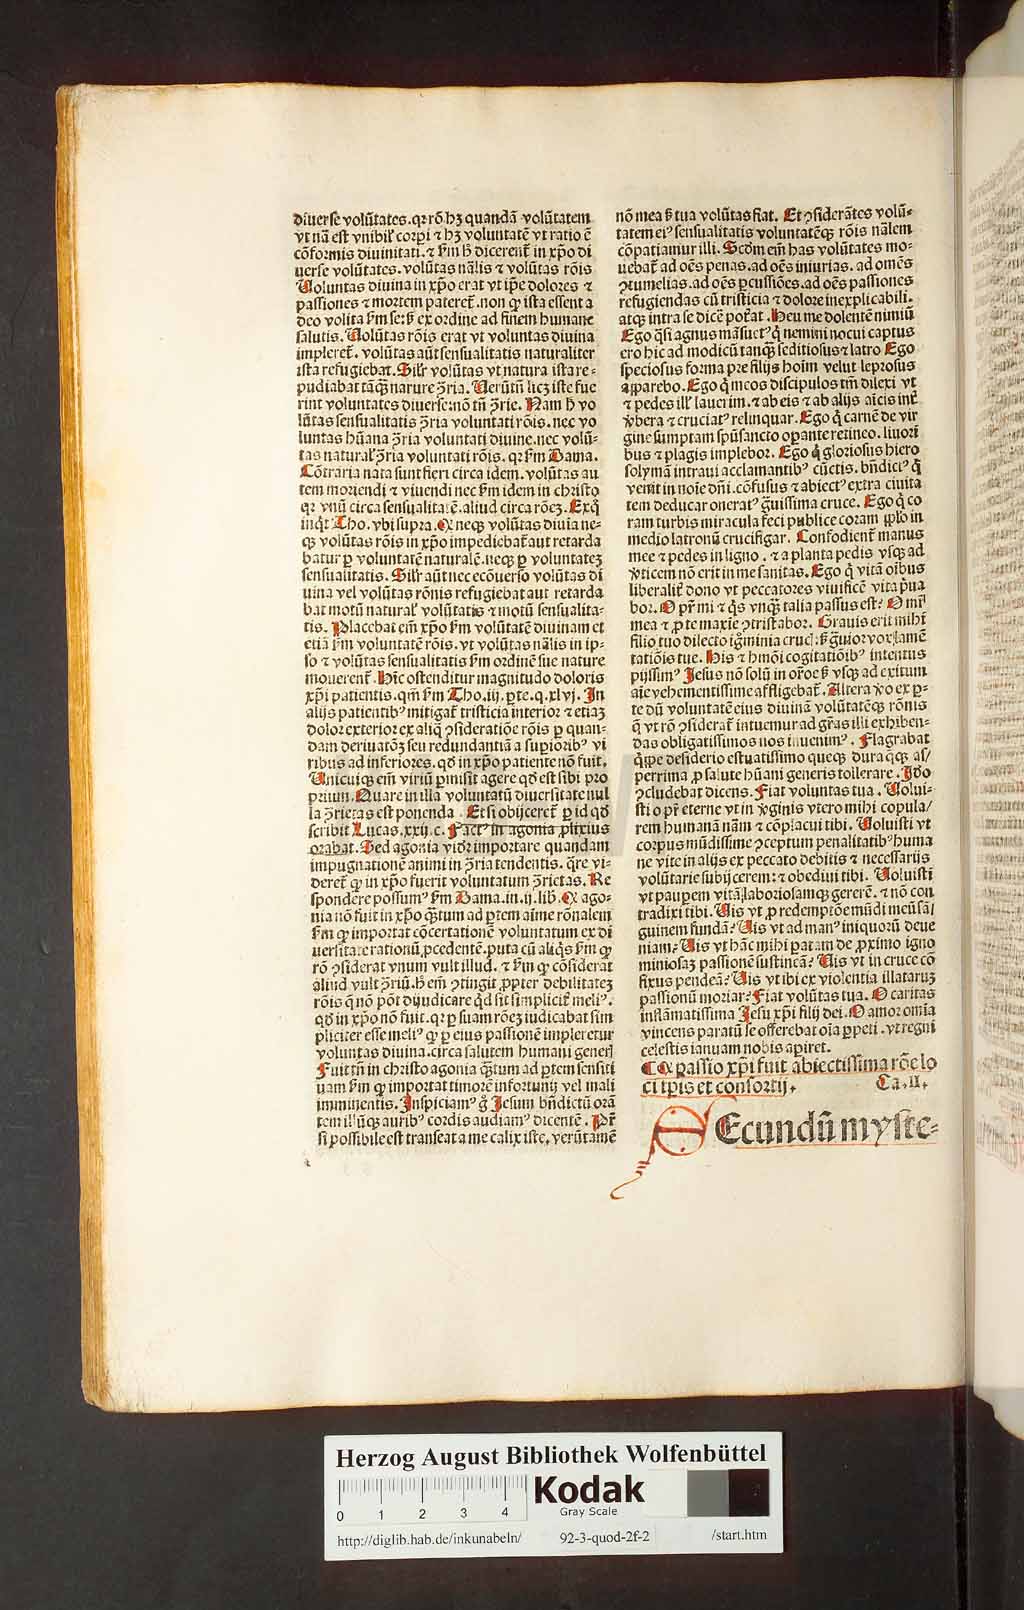 diuerse volūtates. qꝛ rō hꝫ quandā volūtatem
vt nā est vnibil' corpi ⁊ hꝫ voluntatē vt ratio ē
cōformis diuinitati. ⁊ ẜm h̄ dicerent̄ in xp̄o di
uerse volūtates. volūtas nālis ⁊ volūtas rōis
Voluntas diuina in xp̄o erat vt ip̄e dolores ⁊
passiones ⁊ mortem pateret̄. non ꝙ ista essent a
deo volita ẜm se: ẜ ex ordine ad finem humane
salutis. Volūtas rōis erat vt voluntas diuina
impleret̄. volūtas aūt sensualitatis naturaliter
ista refugiebat. Silr̄ volūtas vt natura ista re-
pudiabat tāqꝫ nature ꝯ̄ria. Uerūtn̄ licꝫ iste fue
rint voluntates diuerse: nō tn̄ ꝯ̄rie. Nam h̄ vo
lūtas sensualitatis ꝯ̄ria voluntati rōis. nec vo
luntas hūana ꝯ̄ria voluntati diuine. nec volū-
tas natural' ꝯ̄ria voluntati rōis. qꝛ ẜm Dama.
Cōtraria nata sunt fieri circa idem. volūtas au
tem moriendi ⁊ viuendi nec ẜm idem in christo
qꝛ vnū circa sensualitatē. aliud circa rōeꝫ. Ex q̄
inq̄t Tho. vbi supra. Qꝙ neqꝫ volūtas diuīa ne-
qꝫ volūtas rōis in xp̄o impediebat̄ aut retarda
batur ꝑ voluntatē naturalē. neqꝫ ꝑ voluntateꝫ
sensualitatis. Silr̄ aūt nec ecōuerso volūtas di
uina vel volūtas rōnis refugiebat aut retarda
bat motū natural' volūtatis ⁊ motū sensualita-
tis. Placebat em̄ xp̄o ẜm volūtatē diuinam et
etiā ẜm voluntatē rōis. vt volūtas nālis in ip-
so ⁊ volūtas sensualitatis ẜm ordinē sue nature
mouerent̄. Hīc ostenditur magnitudo doloris
xp̄i patientis. qm̄ ẜm Tho. iij. ꝑte. q. xlvj. In
alijs patientibꝰ mitigat̄ tristicia interior ⁊ etiaꝫ
dolor exterior ex aliq̄ ꝯsideratiōe rōis ꝑ quan-
dam deriuatōꝫ seu redundantiā a suꝑioribꝰ vi
ribus ad inferiores. qd̄ in xp̄o patiente nō fuit.
Unicuiqꝫ em̄ viriū ꝑmisit agere qd̄ est sibi pro
prium. Quare in illa voluntatū diuersitate nul
la ꝯ̄rietas est ponenda. Et si obijceret̄ ꝑ id qd̄
scribit Lucas. xxij. c. Factꝰ in agonia ꝓlixius
orabat. Sed agonia vidr̄ importare quandam
impugnationē animi in ꝯ̄ria tendentis. q̄re vi-
deret̄ ꝙ in xp̄o fuerit voluntatum ꝯ̄rietas. Re
spondere possumꝰ ẜm Dama. in. ij. lib. Qꝙ ago-
nia nō fuit in xp̄o q̄ꝫtum ad ꝑtem aīme rōnalem
ẜm ꝙ importat cōcertationē voluntatum ex di
uersitate rationū ꝓcedentē. puta cū aliq̄s ẜm ꝙ
rō ꝯsiderat vnum vult illud. ⁊ ẜm ꝙ cōsiderat
aliud vult ꝯ̄riū. h̄ em̄ ꝯtingit ꝓpter debilitateꝫ
rōis q̄ nō pōt dijudicare qd̄ sit simplicit̄ meliꝰ.
qd̄ in xp̄o nō fuit. qꝛ ꝑ suam rōeꝫ iudicabat sim
pliciter esse meliꝰ ꝙ ꝑ eius passionē impleretur
voluntas diuina. circa salutem humani gener'
Fuit tn̄ in christo agonia q̄ꝫtum ad ꝑtem sensiti
uam ẜm ꝙ importat timorē infortunij vel mali
imminentis. Inspiciamꝰ g̊ Jesum bn̄dictū orā
tem illūqꝫ auribꝰ cordis audiamꝰ dicentē. Pr̄
si possibile est transeat a me calix iste, verūtamē
nō mea ẜ tua volūtas fiat. Et ꝯsiderātes volū-
tatem eiꝰ sensualitatis voluntatēqꝫ rōis nālem
cōpatiamur illi. Scd̄m em̄ has volūtates mo-
uebat̄ ad oēs penas. ad oēs iniurias. ad omēs
ꝯtumelias. ad oēs ꝑcussiōes. ad oēs passiones
refugiendas cū tristicia ⁊ dolore inexplicabili.
atqꝫ intra se dicē poterat. Heu me dolentē nimiū
Ego q̄si agnus māsuetꝰ q̄ nemini nocui captus
ero hic ad modicū tanqꝫ seditiosus ⁊ latro Ego
speciosus forma pre filijs hoīm velut leprosus
apparebo. Ego q̄ meos discipulos tm̄ dilexi vt
⁊ pedes ill' lauerim. ⁊ ab eis ⁊ ab alijs aīcis int̄
v̄bera ⁊ cruciatꝰ relinquar. Ego q̄ carnē de vir
gine sumptam spūsancto oꝑante retineo. liuori
bus ⁊ plagis implebor. Ego q̄ gloriosus hiero
solymā intraui acclamantibꝰ cūctis. bn̄dicꝰ q̄
venit in noīe dn̄i. cōfusus ⁊ abiectꝰ extra ciuita
tem deducar oneratꝰ g̊uissima cruce. Ego q̄ co
ram turbis miracula feci publice coram pplo in
medio latronū crucifigar. Confodient̄ manus
mee ⁊ pedes in ligno. ⁊ a planta pedis vsqꝫ ad
v̄ticem nō erit in me sanitas. Ego q̄ vitā oībus
liberalit̄ dono vt peccatores viuificē vita pua
bor. O pr̄ mi ⁊ q̄s vnqꝫ talia passus est? O mr̄
mea ⁊ ꝓ te maxīe ꝯtristabor. Grauis erit mihi
filio tuo dilecto ignominia cruc': ẜ g̊uior vox lamē
tatiōis tue. His ⁊ hmōi cogitatiōibꝰ intentus
pijssimꝰ Jesus nō solū in or̄oe ẜ vsqꝫ ad exitum
aīe vehementissime affligebat̄. Altera v̄o ex ꝑ-
te dū voluntatē eius diuinā voluntatēqꝫ rōnis
q̄ vt rō ꝯsiderat̄ intuemur ad gr̄as illi exhiben-
das obligatissimos nos inuenimꝰ. Flagrabat
q̄ippe desiderio estuatissimo queqꝫ dura qꝫ as/
perrima ꝓ salute hūani generis tollerare. Idō
ꝯcludebat dicens. Fiat voluntas tua. Uolui-
sti o pr̄ eterne vt in v̄ginis vtero mihi copula/
rem humanā nām ⁊ cōplacui tibi. Uoluisti vt
corpus mūdissime ꝯceptum penalitatibꝰ huma
ne vite in alijs ex peccato debitis ⁊ necessarijs
volūtarie subijcerem: ⁊ obediui tibi. Uoluisti
vt pauꝑem vitā laboriosamqꝫ gererē. ⁊ nō con
tradixi tibi. Uis vt ꝓ redemptōe mūdi meū sā/
guinem fundā? Uis vt ad manꝰ iniquorū deue
niam? Uis vt hāc mihi patam de ꝓximo igno
miniosaꝫ passionē sustineā? Uis vt in cruce cō
fixus pendeā? Uis vt ibi ex violentia illataruꝫ
passionū moriar? Fiat volūtas tua. O caritas
inflāmatissima Jesu xp̄i filij dei. O amor om̄ia
vincens paratū se offerebat oīa ꝑpeti. vt regni
celestis ianuam nobis aꝑiret.
Qꝙ passio xp̄i fuit abiectissima rōe lo
ci tꝑis et consortij. Ca. II.
SEcundū myste-
Herzog August Bibliothek Wolfenbüttel
0 1 2 3 4
Kodak
Gray Scale
http://diglib.hab.de/inkunabeln/ 92-3-quod-2f-2 /start.htm